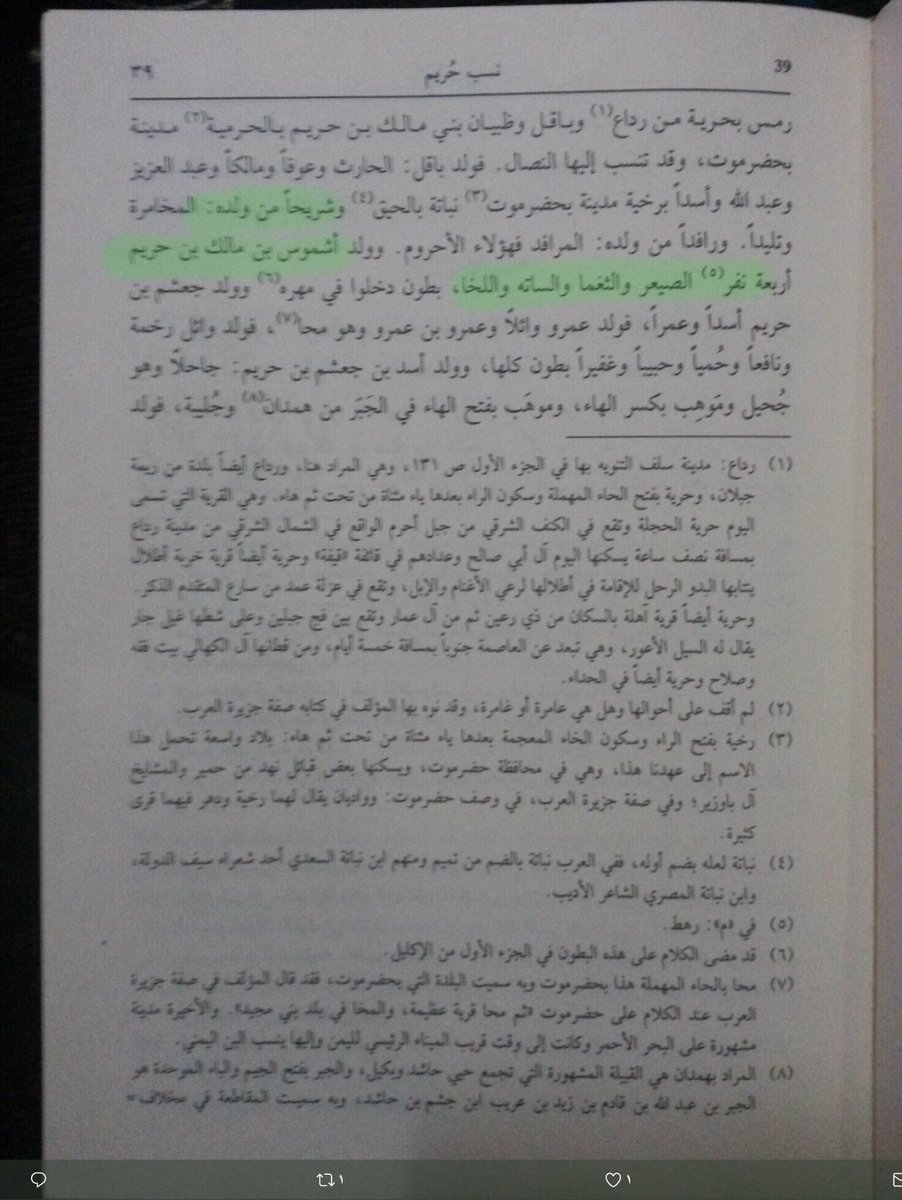 39 نسب حُريم ٣٩
رمس بحرية من رداع(١) وباقل وظبيان بني مالك بن حريم بالحرمية(٢) مدينة
بحضرموت، وقد تنسب إليها النصال. فولد باقل: الحارث وعوفاً ومالكاً وعبد العزيز
وعبد الله وأسداً برخية مدينة بحضرموت(٣) نباتة بالحيق(٤) وشريحاً من ولده: المخامرة
وتليداً. ورافداً من ولده: المرافد فهؤلاء الأحروم. وولد أشموس بن مالك بن حريم
أربعة نفر(٥) الصيعر والثغما والساته واللخا، بطون دخلوا في مهره(٦) وولد جعشم بن
حريم أسداً وعمراً، فولد عمرو وائلاً وعمرو بن عمرو وهو محا(٧)، فولد وائل رخمة
ونافعاً وحُمياً وحبيباً وغفيراً بطون كلها، وولد أسد بن جعشم بن حريم: جاحلاً وهو
جُحيل ومَوهِب بكسر الهاء، وموهَب بفتح الهاء في الجَبَر من همدان(٨) وجُليبة، فولد
(١) رداع: مدينة سلف التنويه بها في الجزء الأول ص ١٣١، وهي المراد هنا، ورداع أيضاً بلدة من ريمة
جبلان، وحرية بفتح الحاء المهملة وسكون الراء بعدها ياء مثناة من تحت ثم هاء. وهي القرية التي تسمى
اليوم حرية الحجلة وتقع في الكنف الشرقي من جبل أحرم الواقع في الشمال الشرقي من مدينة رداع
بمسافة نصف ساعة يسكنها اليوم آل أبي صالح وعدادهم في قائفة «قيفة» وحرية أيضاً قرية خربة أطلال
ينتابها البدو الرحل للإقامة في أطلالها لرعي الأغنام والإبل، وتقع في عزلة عمد من سارع المتقدم الذكر.
وحرية أيضاً قرية آهلة بالسكان من ذي رعين ثم من آل عمار وتقع بين فج جبلين وعلى شطها غيل جار
يقال له السيل الأعور، وهي تبعد عن العاصمة جنوباً بمسافة خمسة أيام، ومن قطانها آل الكهالي بيت فقه
وصلاح وحرية أيضاً في الحداء.
(٢) لم أقف على أحوالها وهل هي عامرة أو غامرة، وقد نوه بها المؤلف في كتابه صفة جزيرة العرب.
(٣) رخية بفتح الراء وسكون الخاء المعجمة بعدها ياء مثناة من تحت ثم هاء: بلاد واسعة تحمل هذا
الاسم إلى عهدنا هذا، وهي في محافظة حضرموت، ويسكنها بعض قبائل نهد من حمير والمشايخ
آل باوزير؛ وفي صفة جزيرة العرب، في وصف حضرموت: وواديان يقال لهما رخية ودهر فيهما قرى
كثيرة.
(٤) نباتة لعله بضم أوله، ففي العرب نباتة بالضم من تميم ومنهم ابن نباتة السعدي أحد شعراء سيف الدولة،
وابن نباتة المصري الشاعر الأديب.
(٥) في «م»: رهط.
(٦) قد مضى الكلام على هذه البطون في الجزء الأول من الإكليل.
(٧) محا بالحاء المهملة هذا بحضرموت وبه سميت البلدة التي بحضرموت، فقد قال المؤلف في صفة جزيرة
العرب عند الكلام على حضرموت «ثم محا قرية عظيمة، والمخا في بلد بني مجيد». والأخيرة مدينة
مشهورة على البحر الأحمر وكانت إلى وقت قريب الميناء الرئيسي لليمن وإليها ينسب البن اليمني.
(٨) المراد بهمدان هي القبيلة المشهورة التي تجمع حيي حاشد وبكيل، والجبر بفتح الجيم والباء الموحدة هو
الجبر بن عبد الله بن قادم بن زيد بن عريب ابن جشم بن حاشد، وبه سميت المقاطعة في مخلاف=
١ ١